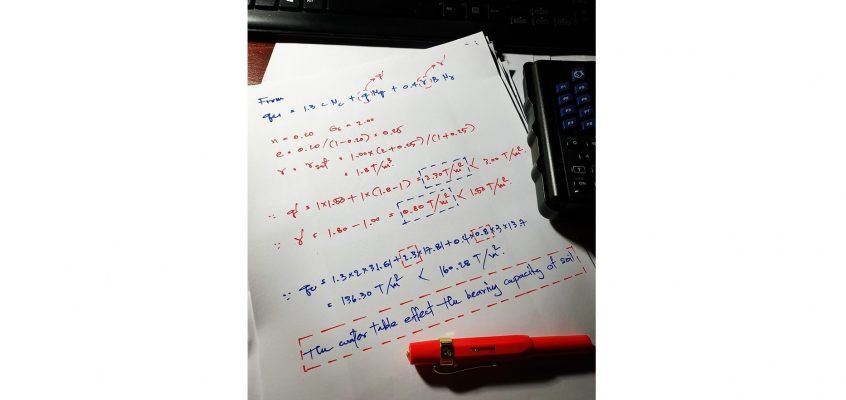 → q'
→ γ'
From
qu = 1.3 c Nc + q Nq + 0.4 γ B Nγ
n = 0.20 Gs = 2.00
e = 0.20/(1-0.20) = 0.25
γ = γsat = 1.00×(2+0.25)/(1+0.25)
= 1.8 T/m³
∵ q' = 1×1.50 + 1×(1.8-1) = 2.30 T/m² < 3.00 T/m²
∵ γ' = 1.80 - 1.00 = 0.80 T/m² < 1.50 T/m²
∵ qu = 1.3×2×31.61 + 2.3×17.81 + 0.4×0.8×3×13.7
= 136.30 T/m² < 160.28 T/m²
The water table effect the bearing capacity of soil